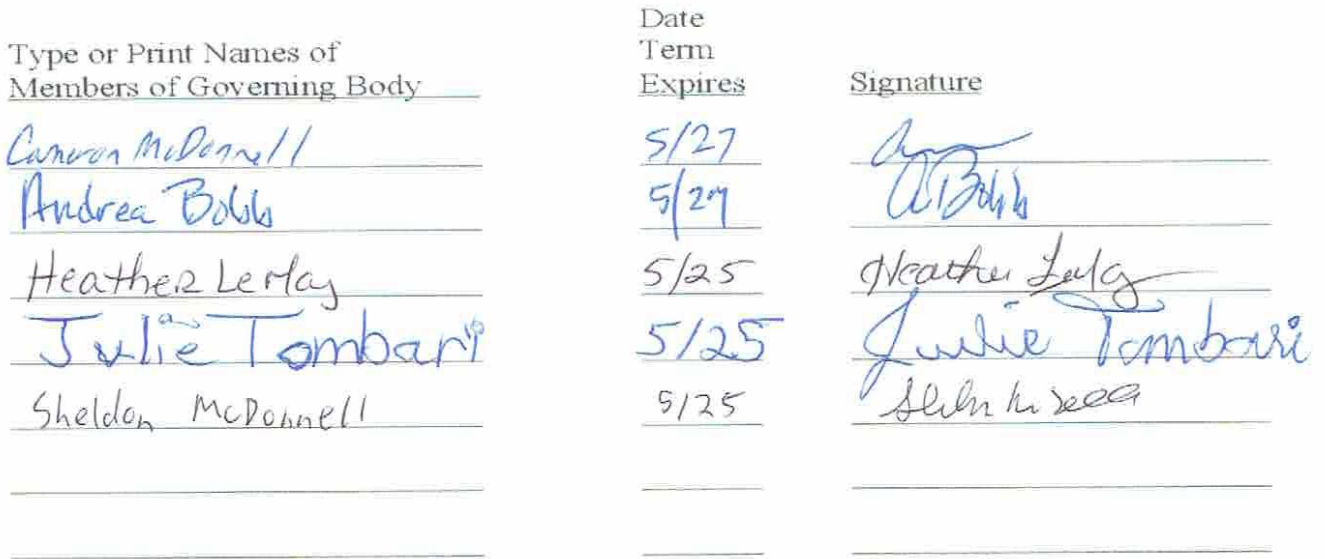 Date
Type or Print Names of Term
Members of Governing Body Expires Signature
Cameron McDonnell 5/27
Andrea Bobb 5/27 A Bobb
Heather Lerlay 5/25 Heather
Julie Tombari 5/25 Julie Tombari
Sheldon McDonnell 5/25